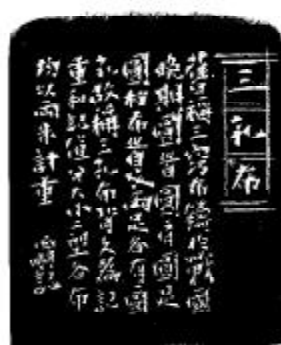 三孔布
舊稱三竅布鑄於戰國
晚期圜首圜肩圜足
圜襠布首及兩足各有圜
孔故稱三孔布背文為記
重和記值分大小二型各布
均以兩朱計重 記